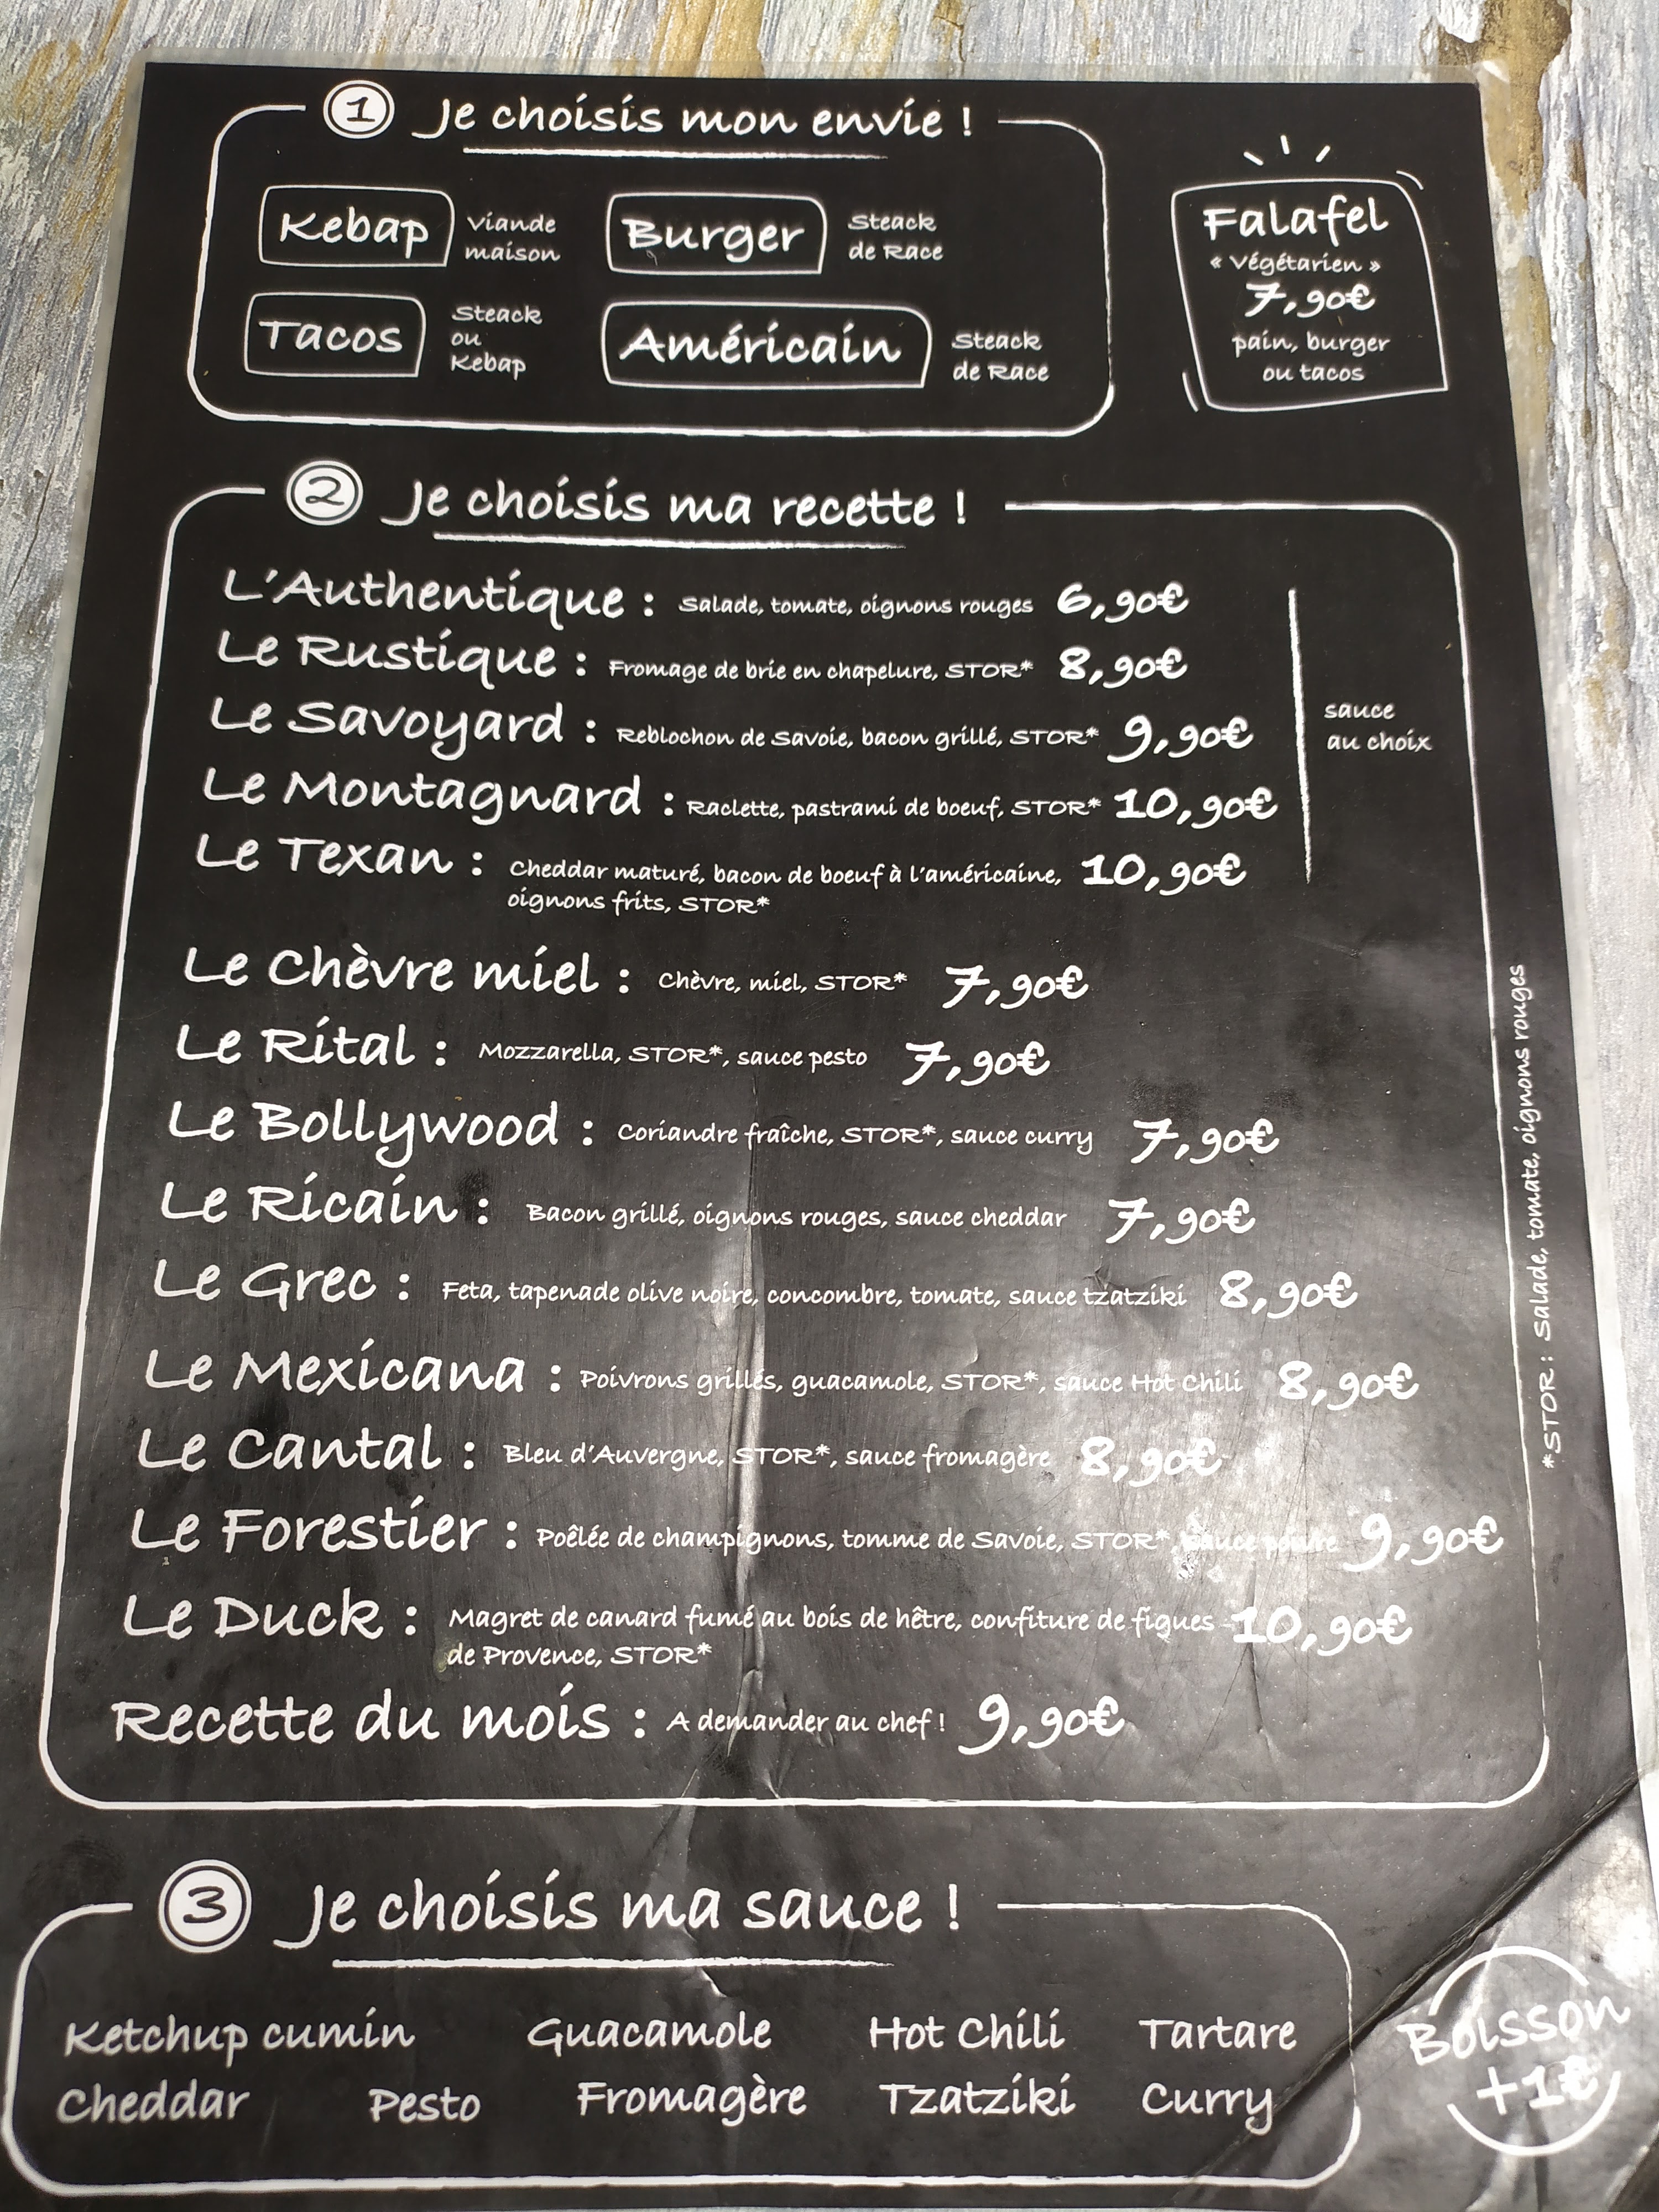 1 Je choisis mon envie !
Kebap
Viande
maison
Burger
Steack
de Race
Tacos
Steack
ou
Kebap
Américain
Steack
de Race
Falafel
« Végétarien »
7,90€
pain, burger
ou tacos
2 Je choisis ma recette !
L'Authentique : Salade, tomate, oignons rouges 6,90€
Le Rustique : Fromage de brie en chapelure, STOR* 8,90€
Le Savoyard : Reblochon de Savoie, bacon grillé, STOR* 9,90€
Le Montagnard : Raclette, pastrami de boeuf, STOR* 10,90€
Le Texan : Cheddar maturé, bacon de boeuf à l'américaine, 10,90€
oignons frits, STOR*
sauce
au choix
Le Chèvre miel : Chèvre, miel, STOR* 7,90€
Le Rital : Mozzarella, STOR*, sauce pesto 7,90€
Le Bollywood : Coriandre fraîche, STOR*, sauce curry 7,90€
Le Ricain : Bacon grillé, oignons rouges, sauce cheddar 7,90€
Le Grec : Feta, tapenade olive noire, concombre, tomate, sauce tzatziki 8,90€
Le Mexicana : Poivrons grillés, guacamole, STOR*, sauce Hot Chili 8,90€
Le Cantal : Bleu d'Auvergne, STOR*, sauce fromagère 8,90€
Le Forestier : Poêlée de champignons, tomme de Savoie, STOR*, sauce 9,90€
Le Duck : Magret de canard fumé au bois de hêtre, confiture de figues 10,90€
de Provence, STOR*
Recette du mois : A demander au chef ! 9,90€
*STOR : Salade, tomate, oignons rouges
3 Je choisis ma sauce !
Ketchup cumin Guacamole Hot Chili Tartare
Cheddar Pesto Fromagère Tzatziki Curry
Boisson
+1€